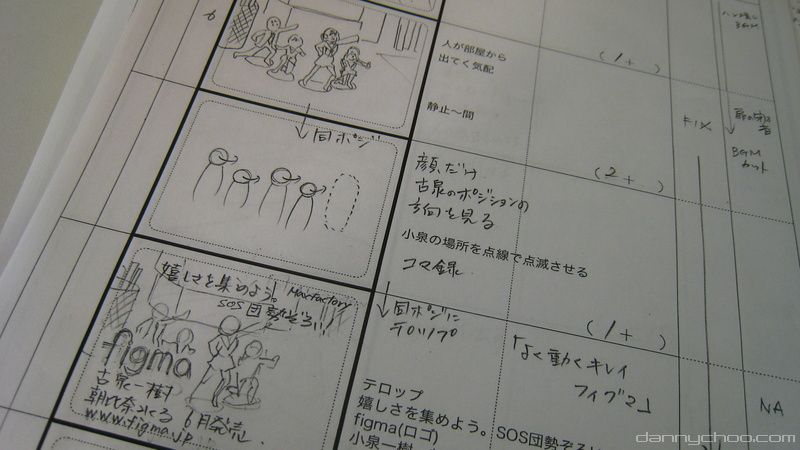 6
人が部屋から
出てく気配
静止〜間
(1+ )
BGM
同ポジ
顔だけ
古泉のポジションの
方向を見る
小泉の場所を点線で点滅させる
コマ録
(2+ )
BGM
カット
嬉しさを集めよう。
Maxfactory
SOS団勢ぞろい!
figma
古泉一樹
朝比奈みくる 6月発売
www.figma.jp
同ポジに
テロップ
(1+ )
「よく動くキレイ
フィグマ」
NA
テロップ
嬉しさを集めよう。
figma(ロゴ)
小泉一樹
SOS団勢ぞろい
dannychoo.com